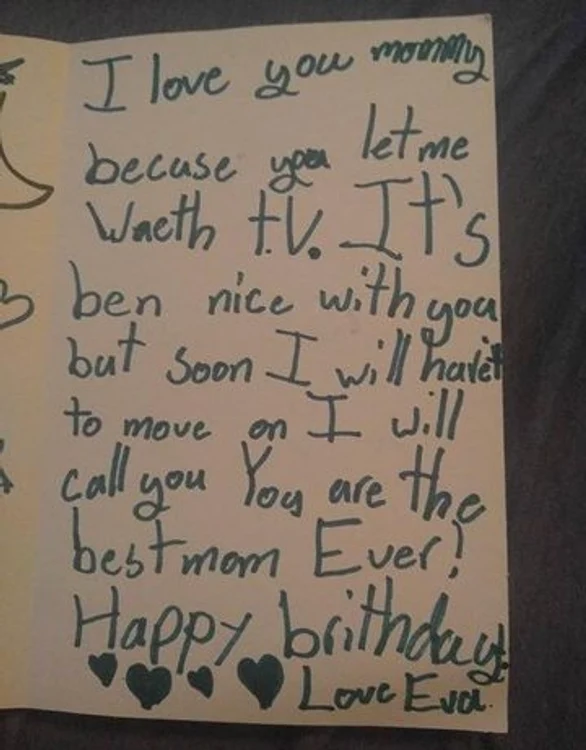 I love you mommy
becuse you let me
Waeth t.V. It's
ben nice with you
but soon I will havet
to move on I will
call you You are the
best mom Ever!
Happy brithday!
Love Eva.